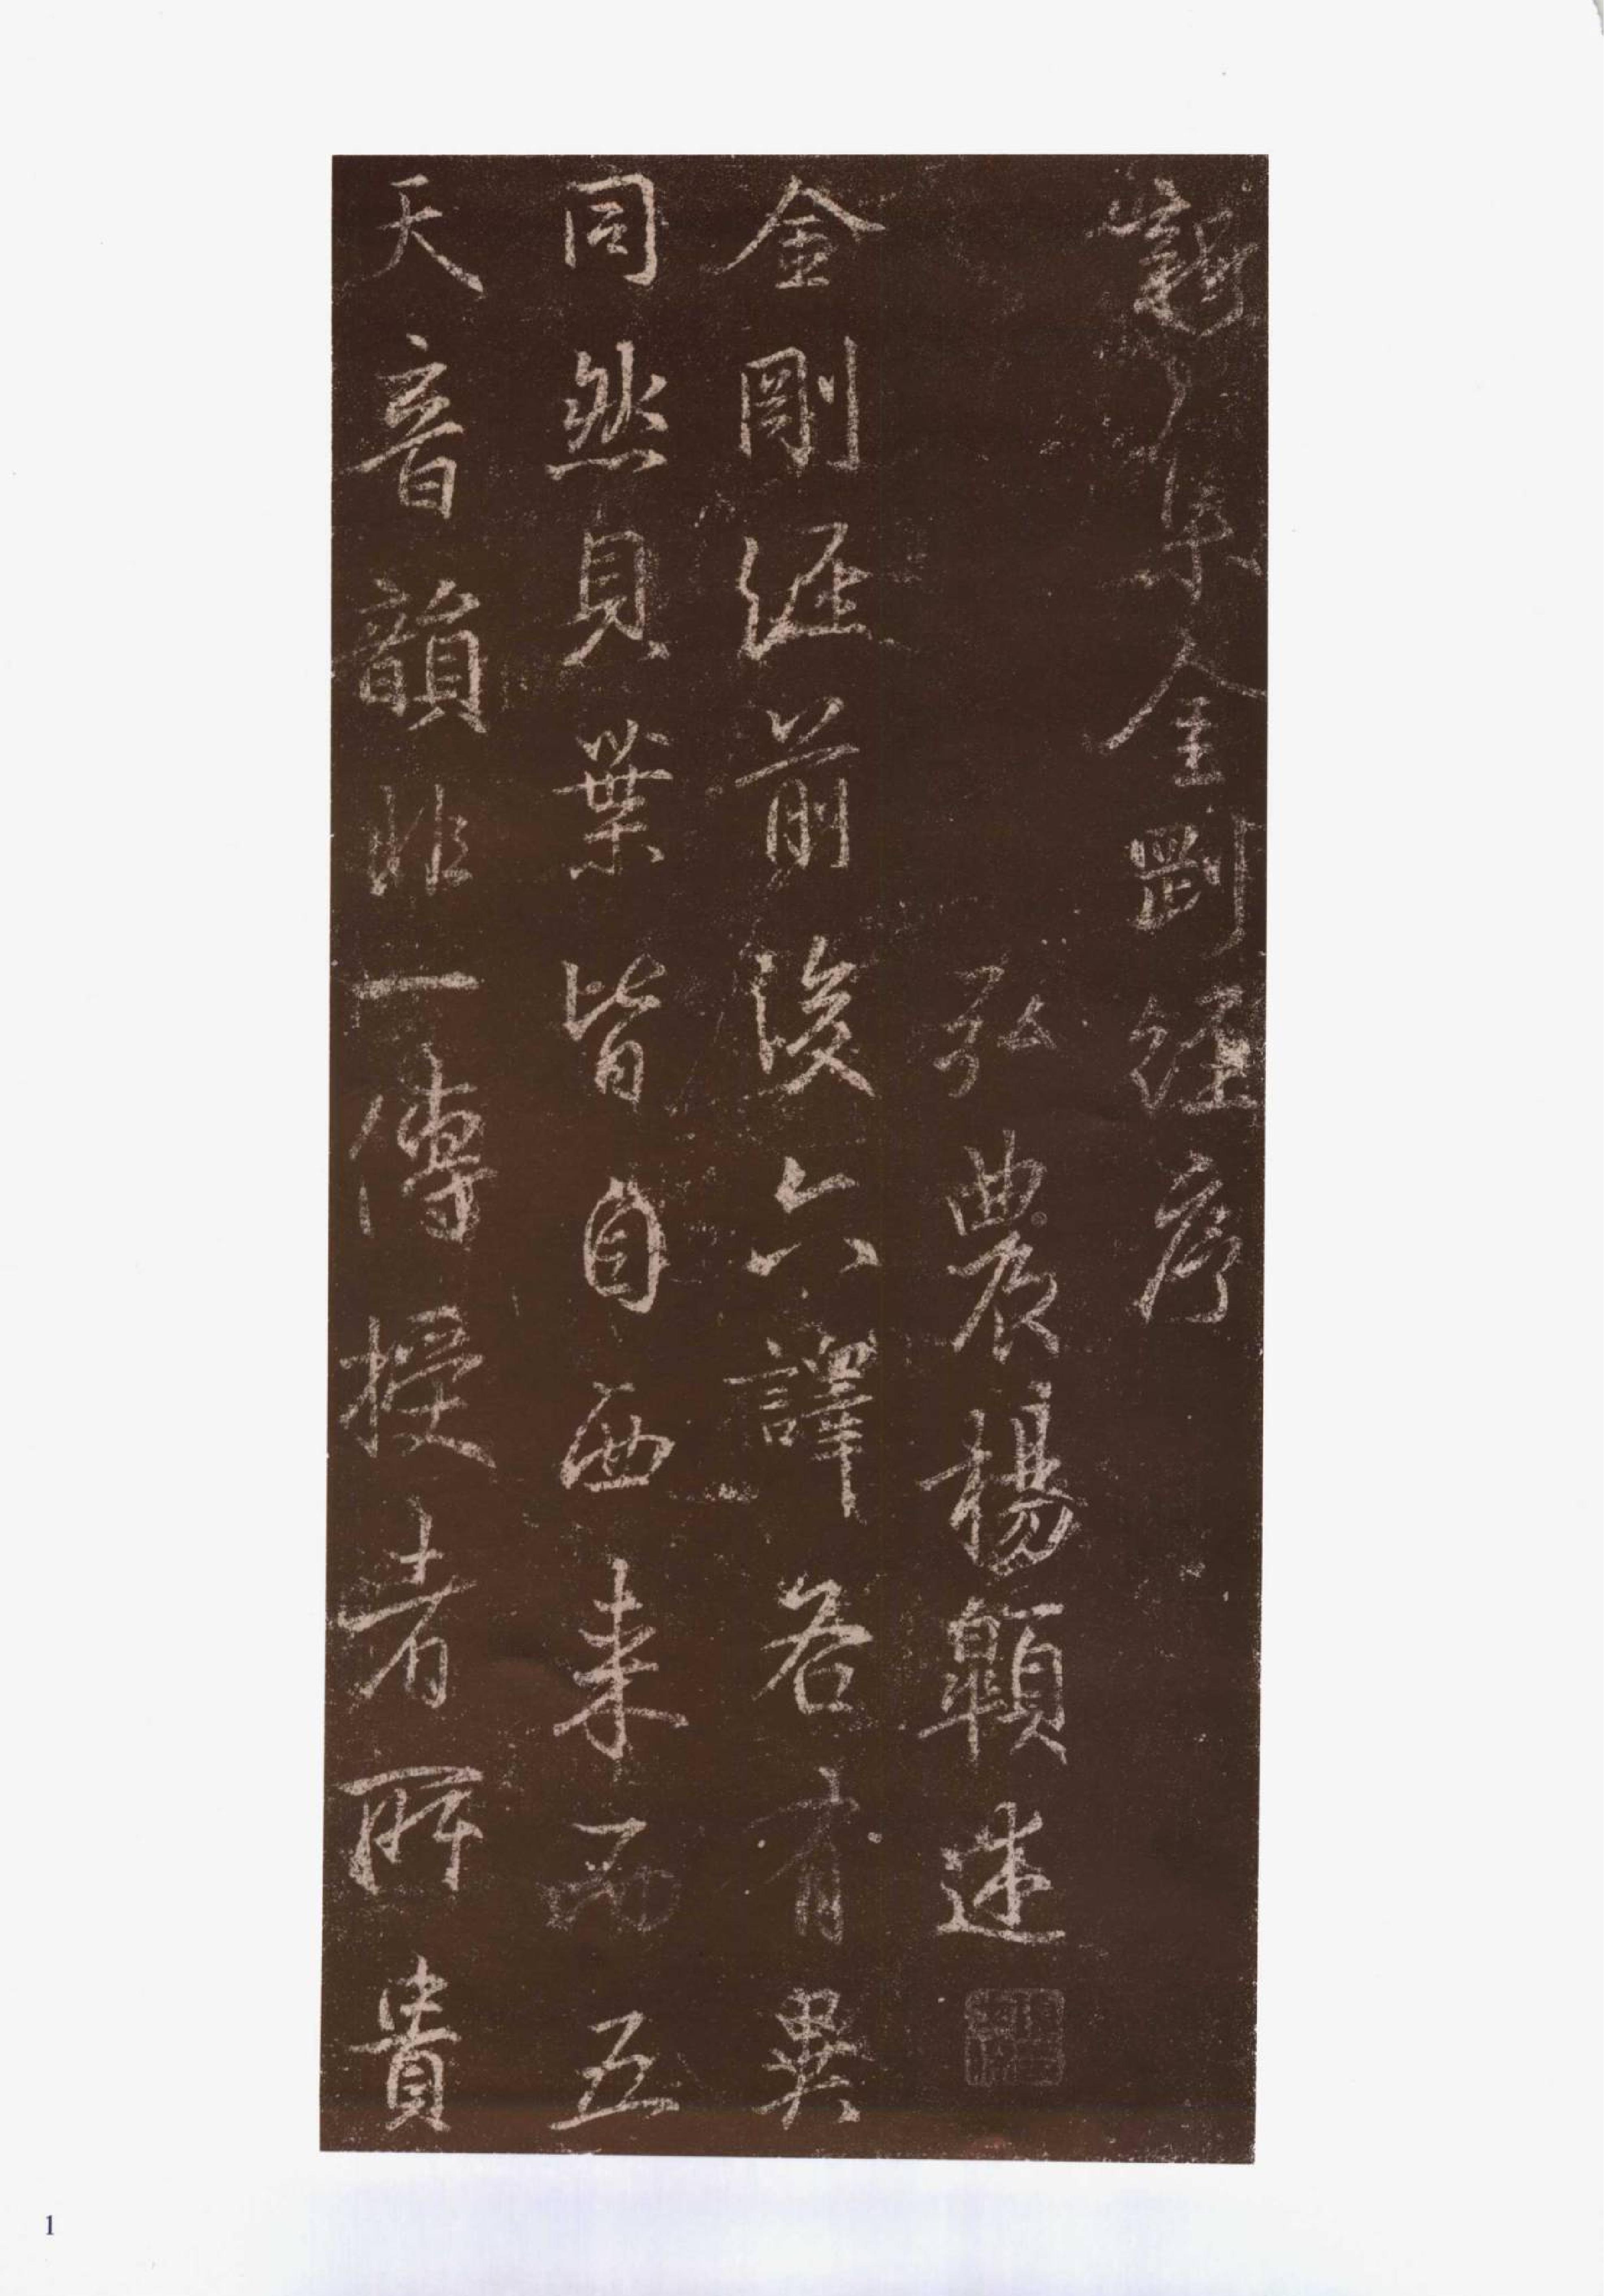 新集金剛經序
弘農楊顒述
金剛經前後六譯各有異
同然貝葉皆自西来而五
天音韻非一傳授者所貴
1